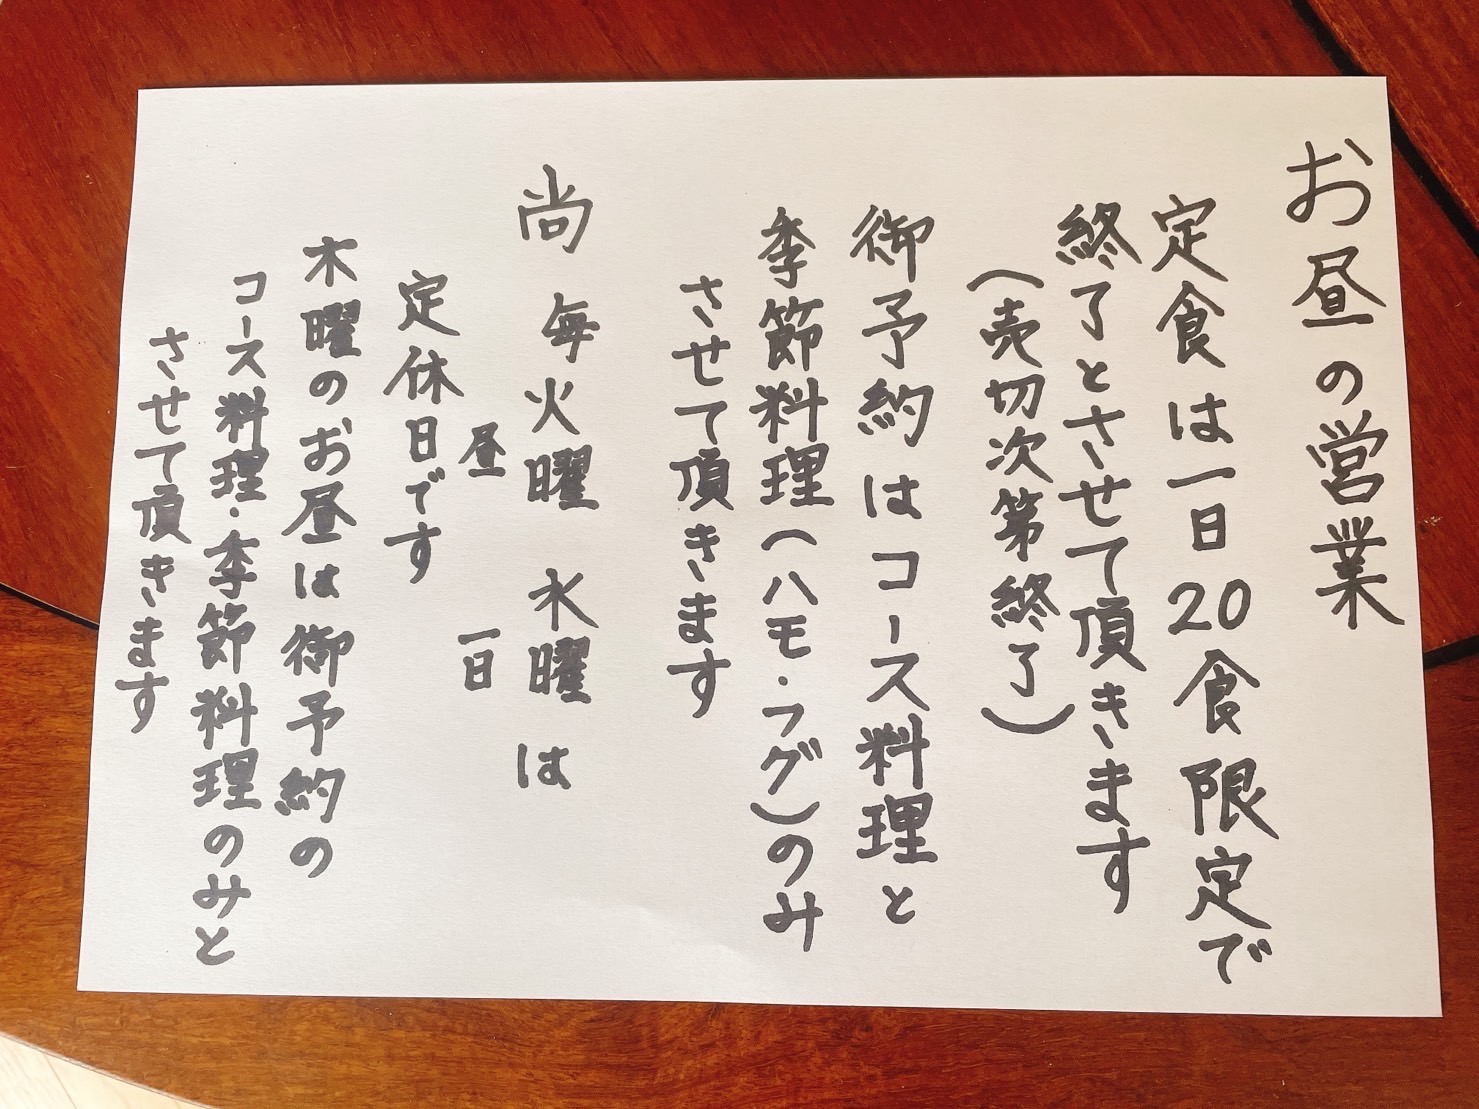 お昼の営業
定食は一日20食限定で
終了とさせて頂きます
(売切次第終了)
御予約はコース料理と
季節料理(ハモ・フグ)のみ
させて頂きます
尚 毎火曜 水曜は
昼 一日
定休日です
木曜のお昼は御予約の
コース料理・季節料理のみと
させて頂きます